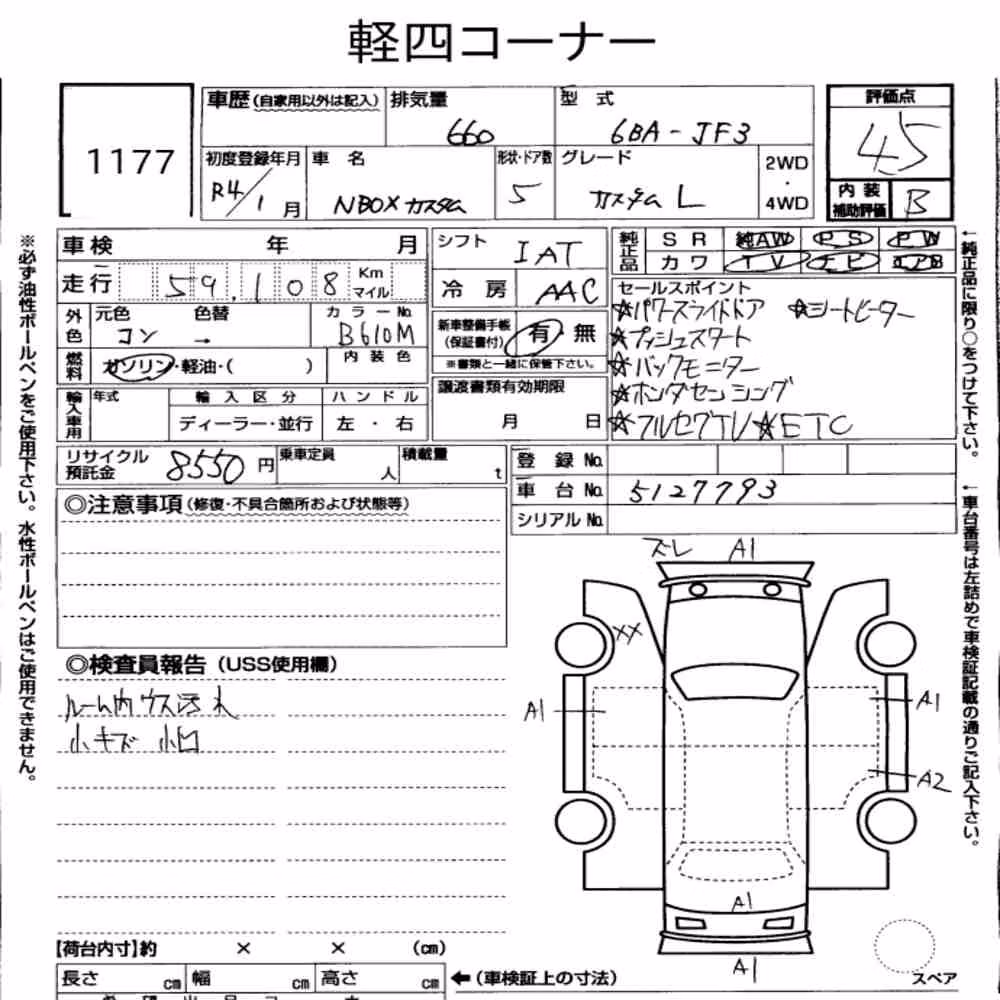 軽四コーナー
1177
車歴(自家用以外は記入) 排気量 660
型式 6BA-JF3
評価点 4.5
初度登録年月 R4/1月
車名 NBOXカスタム
形状・ドア数 5
グレード カスタム L
2WD・4WD
内装補助評価 B
車検 年 月
走行 59,108 Km マイル
シフト IAT
冷房 AAC
純正品 SR 純AW PS PW
カワ TV ナビ エアB
外色 元色 コン 色替 → カラーNo. B610M
燃料 ガソリン・軽油・( ) 内装色
新車整備手帳(保証書付) 有 無
※書類と一緒に保管下さい。
セールスポイント
☆パワースライドドア ☆シートヒーター
☆プッシュスタート
☆バックモニター
☆ホンダセンシング
☆フルセグTV☆ETC
輸入車用 年式 輸入区分 ハンドル
ディーラー・並行 左・右
譲渡書類有効期限
月 日
リサイクル預託金 8550円 乗車定員 人 積載量 t
登録No.
車台No. 5127793
シリアルNo.
◎注意事項(修復・不具合箇所および状態等)
◎検査員報告(USS使用欄)
ルーム内ウス汚れ
小キズ 小凹
ズレ A1
XX
A1
A1
A2
A1
A1
スペア
【荷台内寸】約 × × (cm)
長さ cm 幅 cm 高さ cm ←(車検証上の寸法)
※必ず油性ボールペンをご使用下さい。水性ボールペンはご使用できません。
←純正品に限り○をつけて下さい。
←車台番号は左詰めで車検証記載の通りご記入下さい。